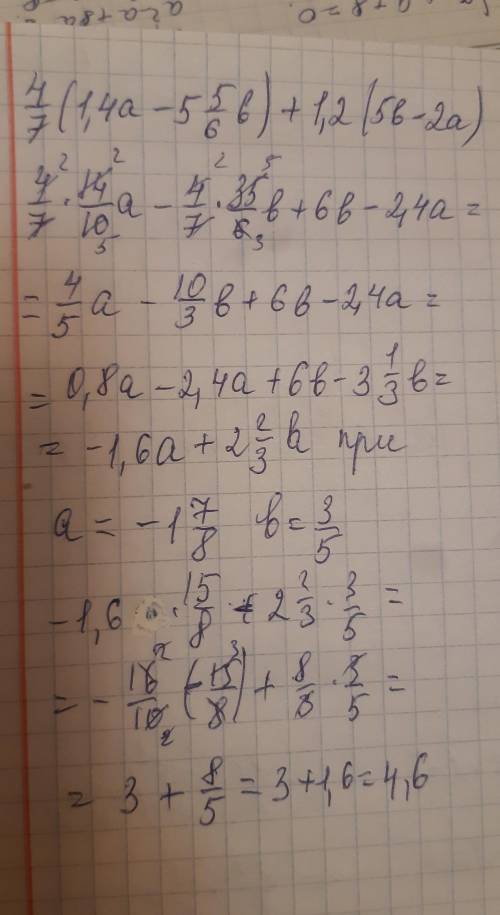 4/7 (1,4a - 5 5/6 b) + 1,2 (5b - 2a)
4/7 · 14/10 a - 4/7 · 35/6 b + 6b - 2,4a =
= 4/5 a - 10/3 b + 6b - 2,4a =
= 0,8a - 2,4a + 6b - 3 1/3 b =
= -1,6a + 2 2/3 b при
a = -1 7/8 b = 3/5
-1,6 · 15/8 + 2 2/3 · 3/5 =
= - 16/10 (- 15/8) + 8/3 · 3/5 =
= 3 + 8/5 = 3 + 1,6 = 4,6